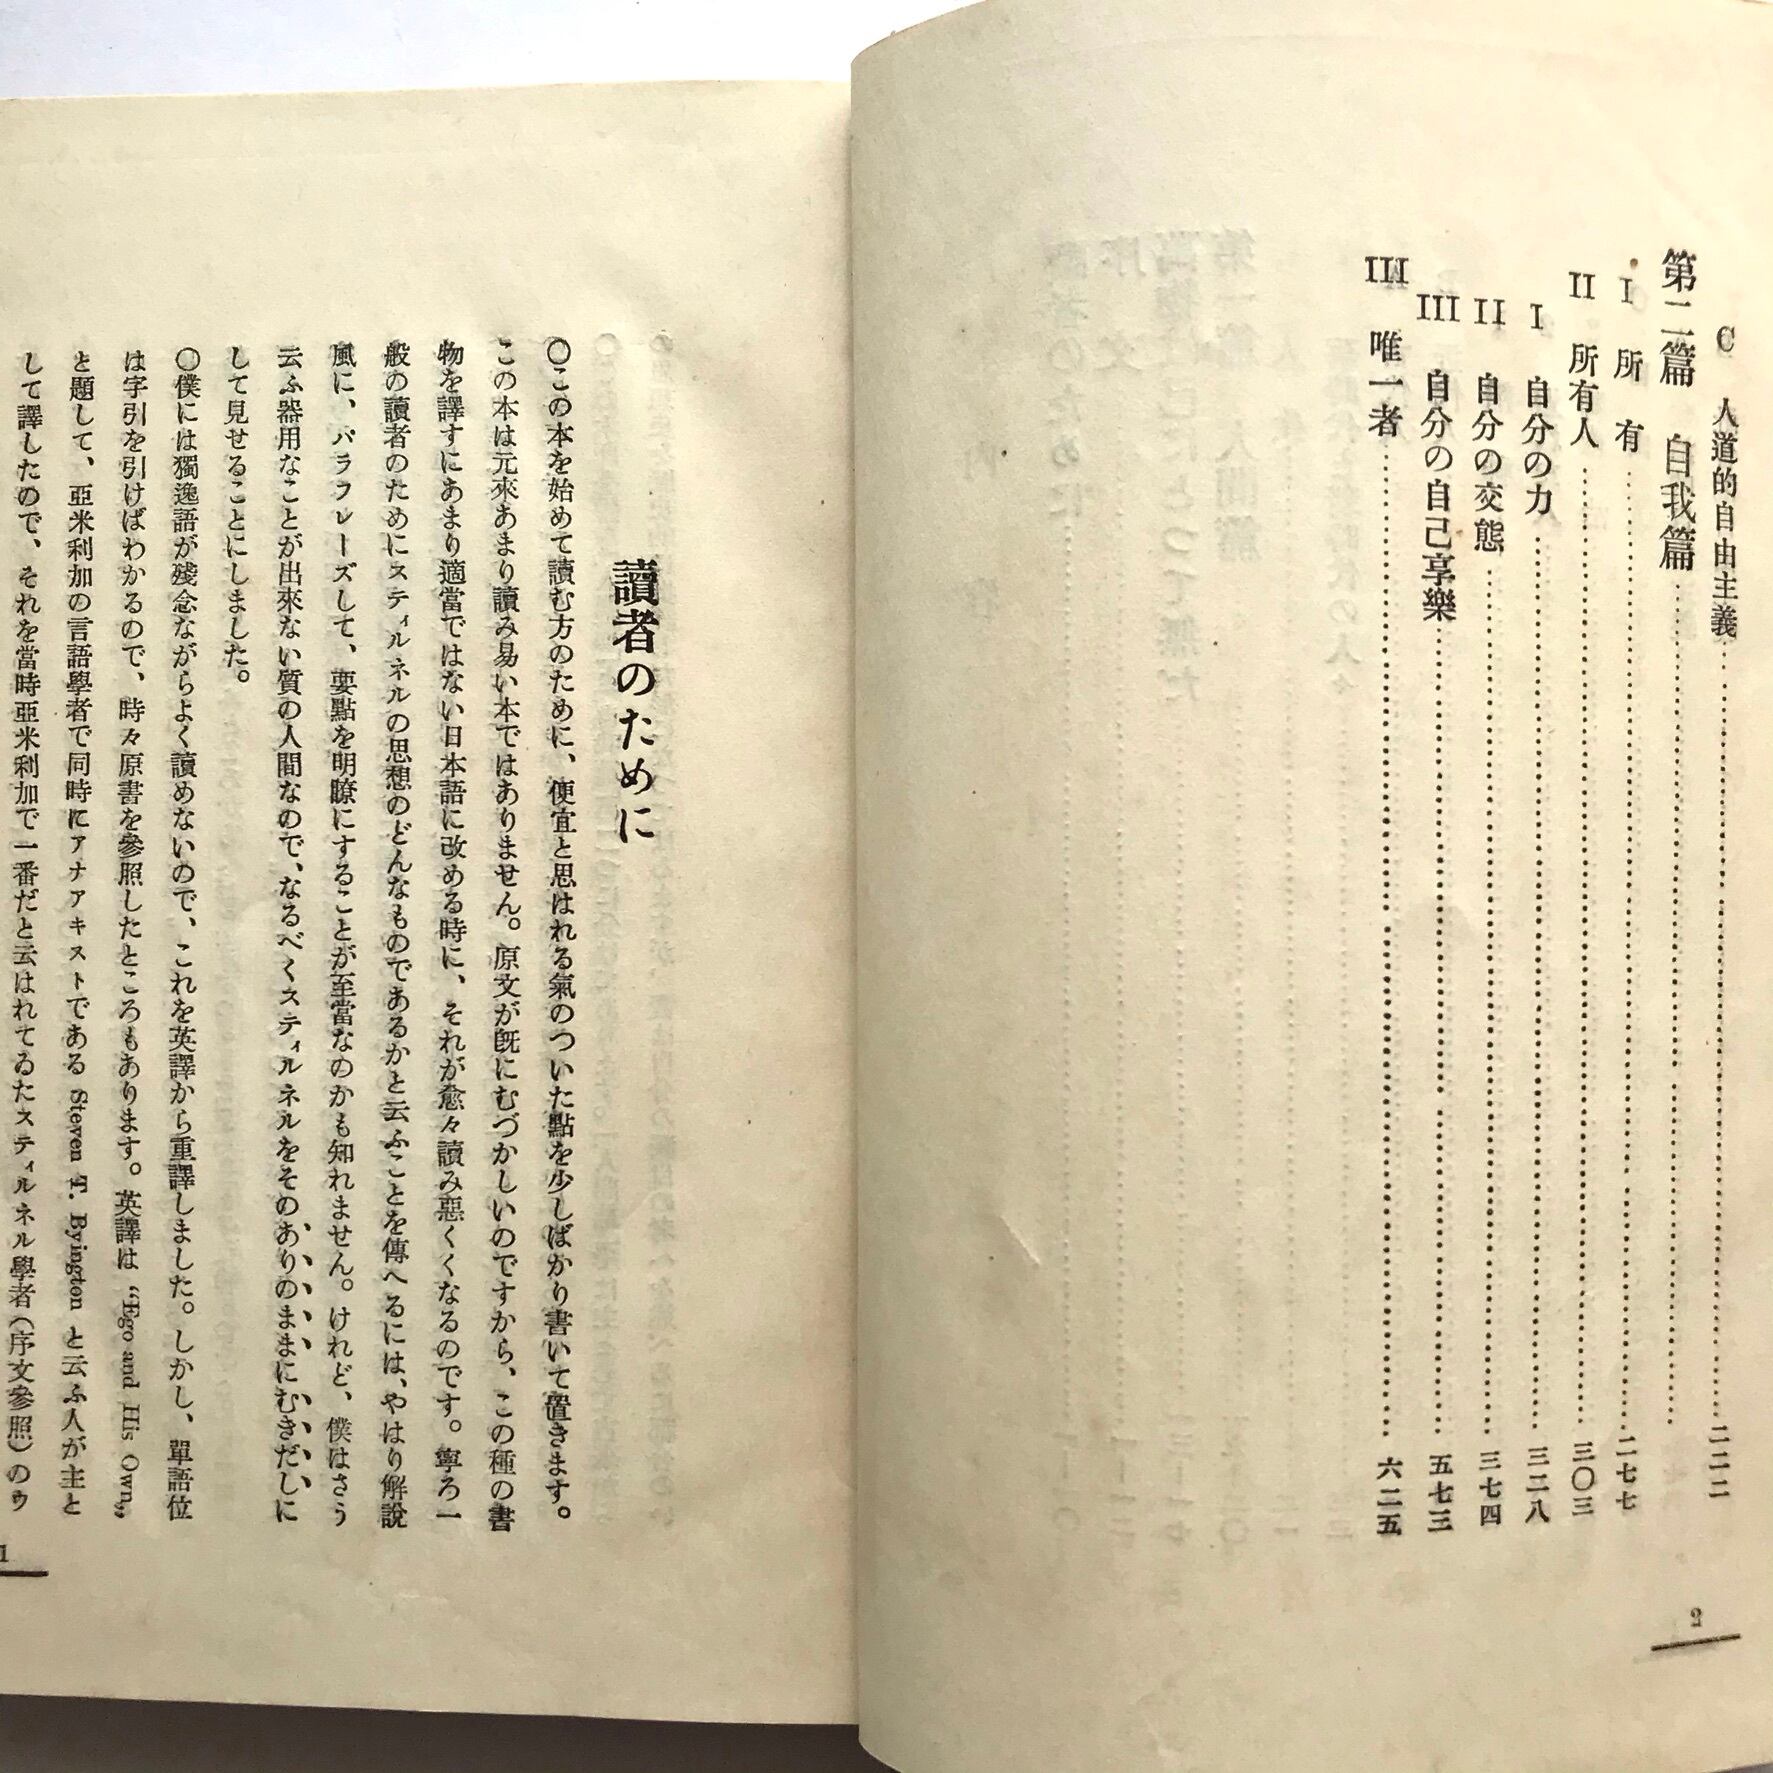 C 人道的自由主義……二二二
第二篇 自我篇……
I 所有……二七七
II 所有人……三〇三
I 自分の力……三二八
II 自分の交態……三七四
III 自分の自己享樂……五七三
III 唯一者……六二五
2
讀者のために
〇この本を始めて讀む方のために、便宜と思はれる氣のついた點を少しばかり書いて置きます。
この本は元來あまり讀み易い本ではありません。原文が既にむづかしいのですから、この種の書
物を譯すにあまり適當ではない日本語に改める時に、それが愈々讀み惡くくなるのです。寧ろ一
般の讀者のためにスティルネルの思想のどんなものであるかと云ふことを傳へるには、やはり解說
風に、パラフレーズして、要點を明瞭にすることが至當なのかも知れません。けれど、僕はさう
云ふ器用なことが出來ない質の人間なので、なるべくスティルネルをそのありのままにむきだしに
して見せることにしました。
〇僕には獨逸語が殘念ながらよく讀めないので、これを英譯から重譯しました。しかし、單語位
は字引を引けばわかるので、時々原書を參照したところもあります。英譯は “Ego and His Own„
と題して、亞米利加の言語學者で同時にアナアキストである Steven T. Byington と云ふ人が主と
して譯したので、それを當時亞米利加で一番だと云はれてゐたスティルネル學者(序文參照)のゥ
1